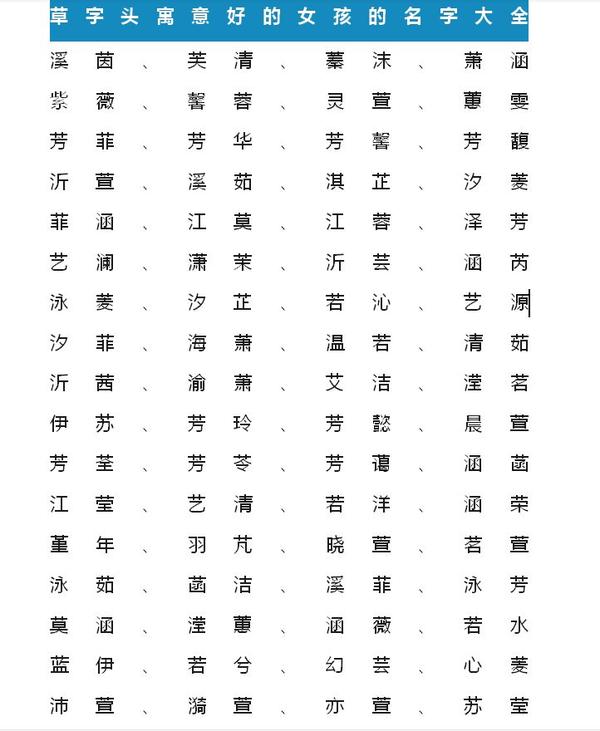 草字头寓意好的女孩的名字大全
溪茵、芙清、蓁沫、萧涵
紫薇、馨蓉、灵萱、蕙雯
芳菲、芳华、芳馨、芳馥
沂萱、溪茹、淇芷、汐菱
菲涵、江莫、江蓉、泽芳
艺澜、潇茉、沂芸、涵芮
泳菱、汐芷、若沁、艺源
汐菲、海萧、温若、清茹
沂茜、渝萧、艾洁、滢茗
伊苏、芳玲、芳懿、晨萱
芳荃、芳苓、芳蔼、涵菡
江莹、艺清、若洋、涵荣
堇年、羽芃、晓萱、茗萱
泳茹、菡洁、溪菲、泳芳
莫涵、滢蕙、涵薇、若水
蓝伊、若兮、幻芸、心菱
沛萱、漪萱、亦萱、苏莹